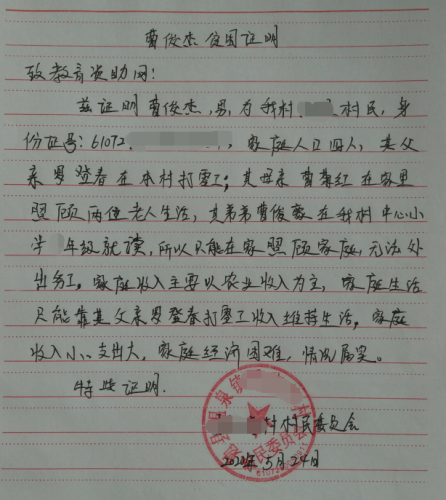 曹俊杰贫困证明
致教育资助网：
兹证明曹俊杰，男，为我村 村民，身
份证号：61072 ，家庭人口四人，其父
亲 登春在本村打零工；其母亲曹 红在家里
照顾两位老人生活，其弟弟曹俊 在我村中心小
学 年级就读，所以只能在家照顾家庭，无法外
出务工。家庭收入主要以农业收入为主，家庭生活
只能靠其父亲 登春打零工收入维持生活，家庭
收入小、支出大，家庭经济困难，情况属实。
特此证明.
村村民委员会
2020年5月24日